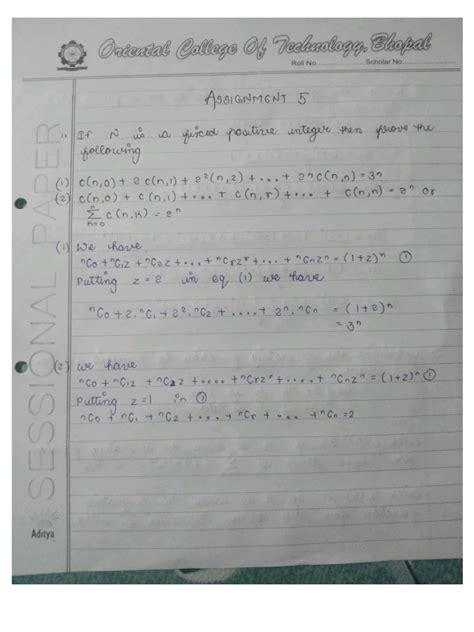 Oriental College Of Technology, Bhopal
Roll No. Scholar No.
ASSIGNMENT 5
1. If N is a fixed positive integer then prove the
following
(1) C(n,0) + 2 C(n,1) + 2²(n,2) + ... + 2nC(n,n) = 3n
(2) C(n,0) + C(n,1) + ... + C(n,r) + ... + C(n,n) = 2ⁿ or
n
Σ C(n,K) = 2ⁿ
K=0
(1) We have
ⁿC0 + ⁿC1z + ⁿC2z + ... + ⁿCrzʳ + ... + ⁿCnzⁿ = (1+z)ⁿ ①
Putting z = 2 in eq (1) we have
ⁿC0 + 2.ⁿC1 + 2².ⁿC2 + ... + 2ⁿ.ⁿCn = (1+2)ⁿ
= 3ⁿ
(2) we have
ⁿC0 + ⁿC1z + ⁿC2z + .... + ⁿCrzʳ + .... + ⁿCnzⁿ = (1+z)ⁿ ①
Putting z=1 in ①
ⁿC0 + ⁿC1 + ⁿC2 + .... + ⁿCr + .... + ⁿCn = 2
SESSIONAL PAPER
Aditya